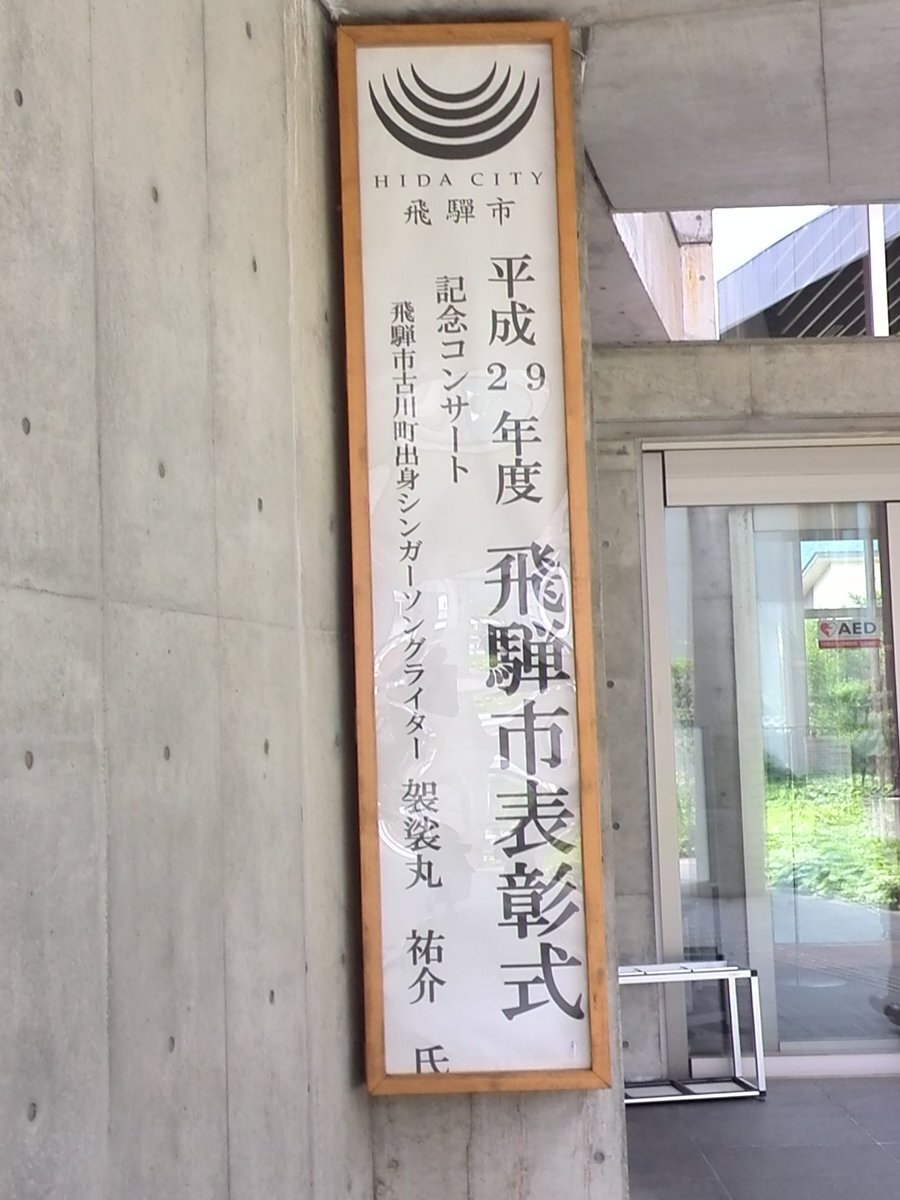 HIDA CITY
飛驒市
平成29年度 飛騨市表彰式
記念コンサート
飛騨市古川町出身シンガーソングライター 袈裟丸 祐介 氏
AED